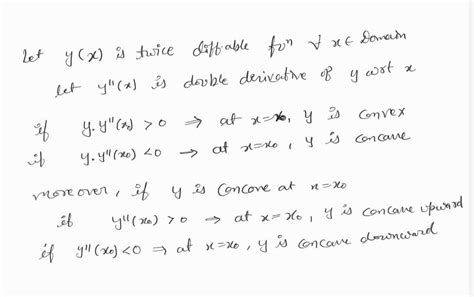 Let y(x) is twice diff.able fun ∀ x ∈ Domain
let y''(x) is double derivative of y wrt x
if y.y''(x₀) > 0 ⇒ at x=x₀, y is convex
if y.y''(x₀) < 0 → at x=x₀, y is concave
moreover, if y is Concave at x=x₀
if y''(x₀) > 0 ⇒ at x=x₀, y is concave upward
if y''(x₀) < 0 ⇒ at x=x₀, y is concave downward